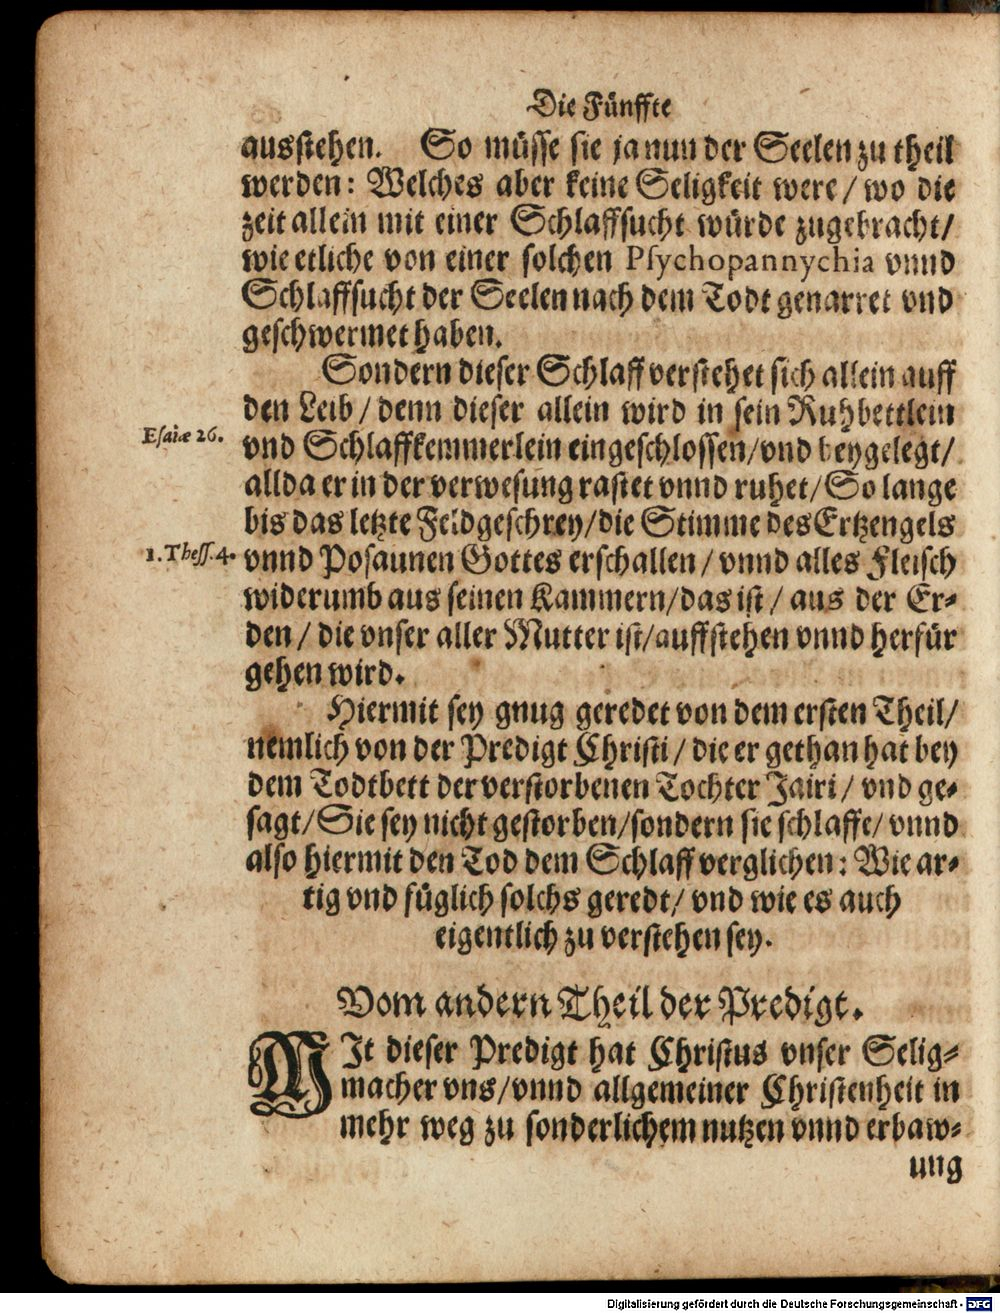 Die Fünffte
ausstehen. So müsse sie ja nun der Seelen zu theil
werden: Welches aber keine Seligkeit were/ wo die
zeit allein mit einer Schlaffsucht würde zugebracht/
wie etliche von einer solchen Psychopannychia vnnd
Schlaffsucht der Seelen nach dem Todt genarret vnd
geschwermet haben.
Sondern dieser Schlaff verstehet sich allein auff
den Leib/ denn dieser allein wird in sein Ruhbettlein
Esaiæ 26. vnd Schlaffkemmerlein eingeschlossen/vnd beygelegt/
allda er in der verwesung rastet vnnd ruhet/So lange
bis das letzte Feldgeschrey/die Stimme des Ertzengels
1. Thess. 4. vnnd Posaunen Gottes erschallen/ vnnd alles Fleisch
widerumb aus seinen Kammern/das ist/ aus der Er-
den/ die vnser aller Mutter ist/auffstehen vnnd herfür
gehen wird.
Hiermit sey gnug geredet von dem ersten Theil/
nemlich von der Predigt Christi/ die er gethan hat bey
dem Todtbett der verstorbenen Tochter Jairi/ vnd ge-
sagt/Sie sey nicht gestorben/sondern sie schlaffe/ vnnd
also hiermit den Tod dem Schlaff verglichen: Wie ar-
tig vnd füglich solchs geredt/ vnd wie es auch
eigentlich zu verstehen sey.
Vom andern Theil der Predigt.
MIt dieser Predigt hat Christus vnser Selig-
macher vns/vnnd allgemeiner Christenheit in
mehr weg zu sonderlichem nutzen vnnd erbaw-
ung
Digitalisierung gefördert durch die Deutsche Forschungsgemeinschaft - DFG